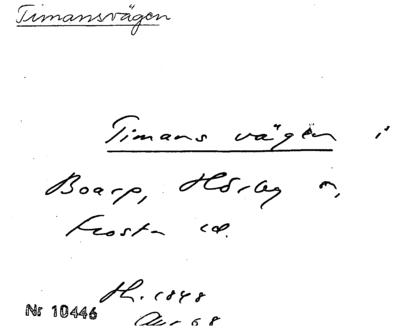 Timansvägen
Timans vägen i
Boarp, Hörby sn,
Frosta hd.
Nr 10446